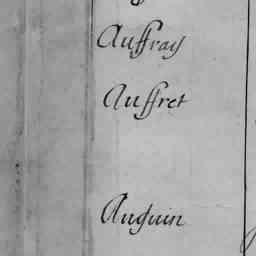 Auffray
Auffret
Auguin